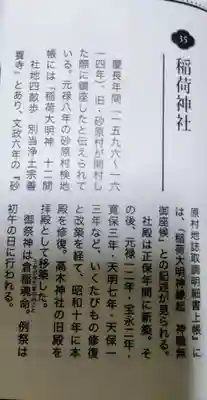 35
稲荷神社
慶長年間（一五九六〜一六
一四年）、旧・砂原村が開村し
た際に鎮座したと伝えられて
いる。元禄八年の砂原村検地
帳には「稲荷大明神 十二間
社地四畝歩 別当浄土宗善
寶寺」とあり、文政六年の『砂
原村地誌取調明細書上帳』に
は、「稲荷大明神縁起 神職無
御座候」との記述が見られる。
社殿は正保年間に新築。そ
の後、元禄一二年・宝永二年・
寛保三年・天明七年・天保一
三年など、いくたびもの修復
と改築を経て、昭和十年に本
殿を修復。高木神社の旧殿を
拝殿として移築した。
御祭神は倉稲魂命。例祭は
初午の日に行われる。